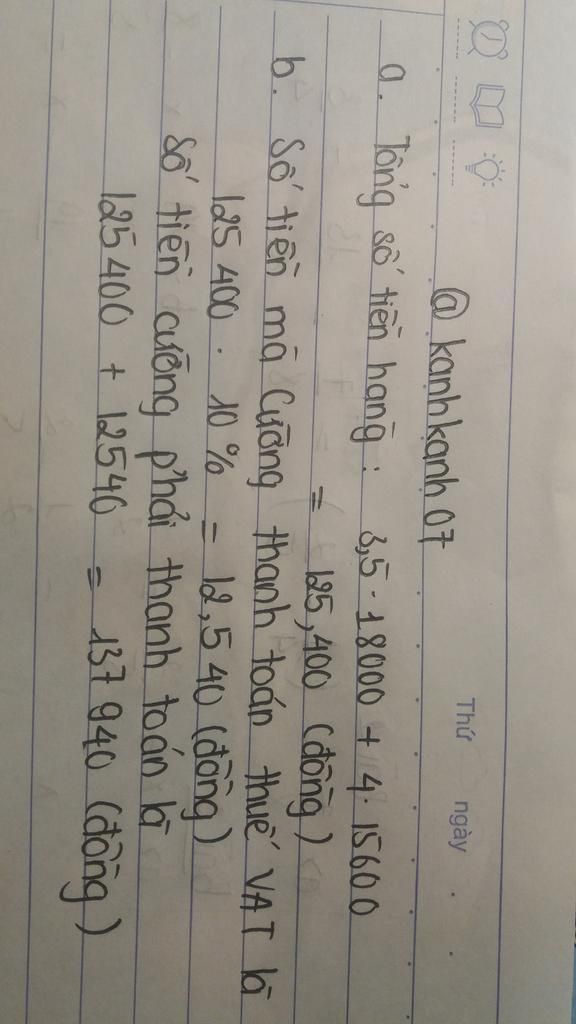 Thứ ngày
@ kanhkanh07
a. Tổng số tiền hang : 3,5 . 18000 + 4. 15600
= 125,400 (đồng)
b. Số tiền mà Cường thanh toán thuế VAT là
125400 . 10% = 12,540 (đồng)
số tiền cường phải thanh toán là
125400 + 12540 = 137940 (đồng)